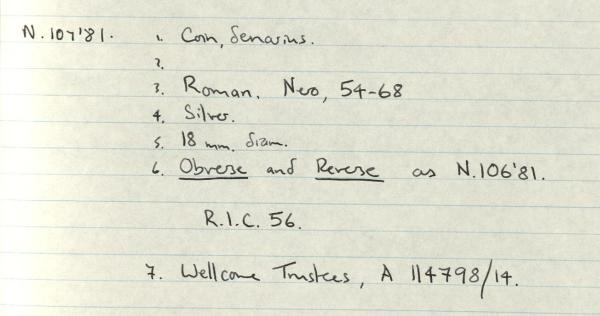 N.107'81. 1. Coin, denarius.
2.
3. Roman. Nero, 54-68
4. Silver.
5. 18 mm. diam.
6. Obverse and Reverse as N.106'81.
R.I.C. 56.
7. Wellcome Trustees, A 114798/14.